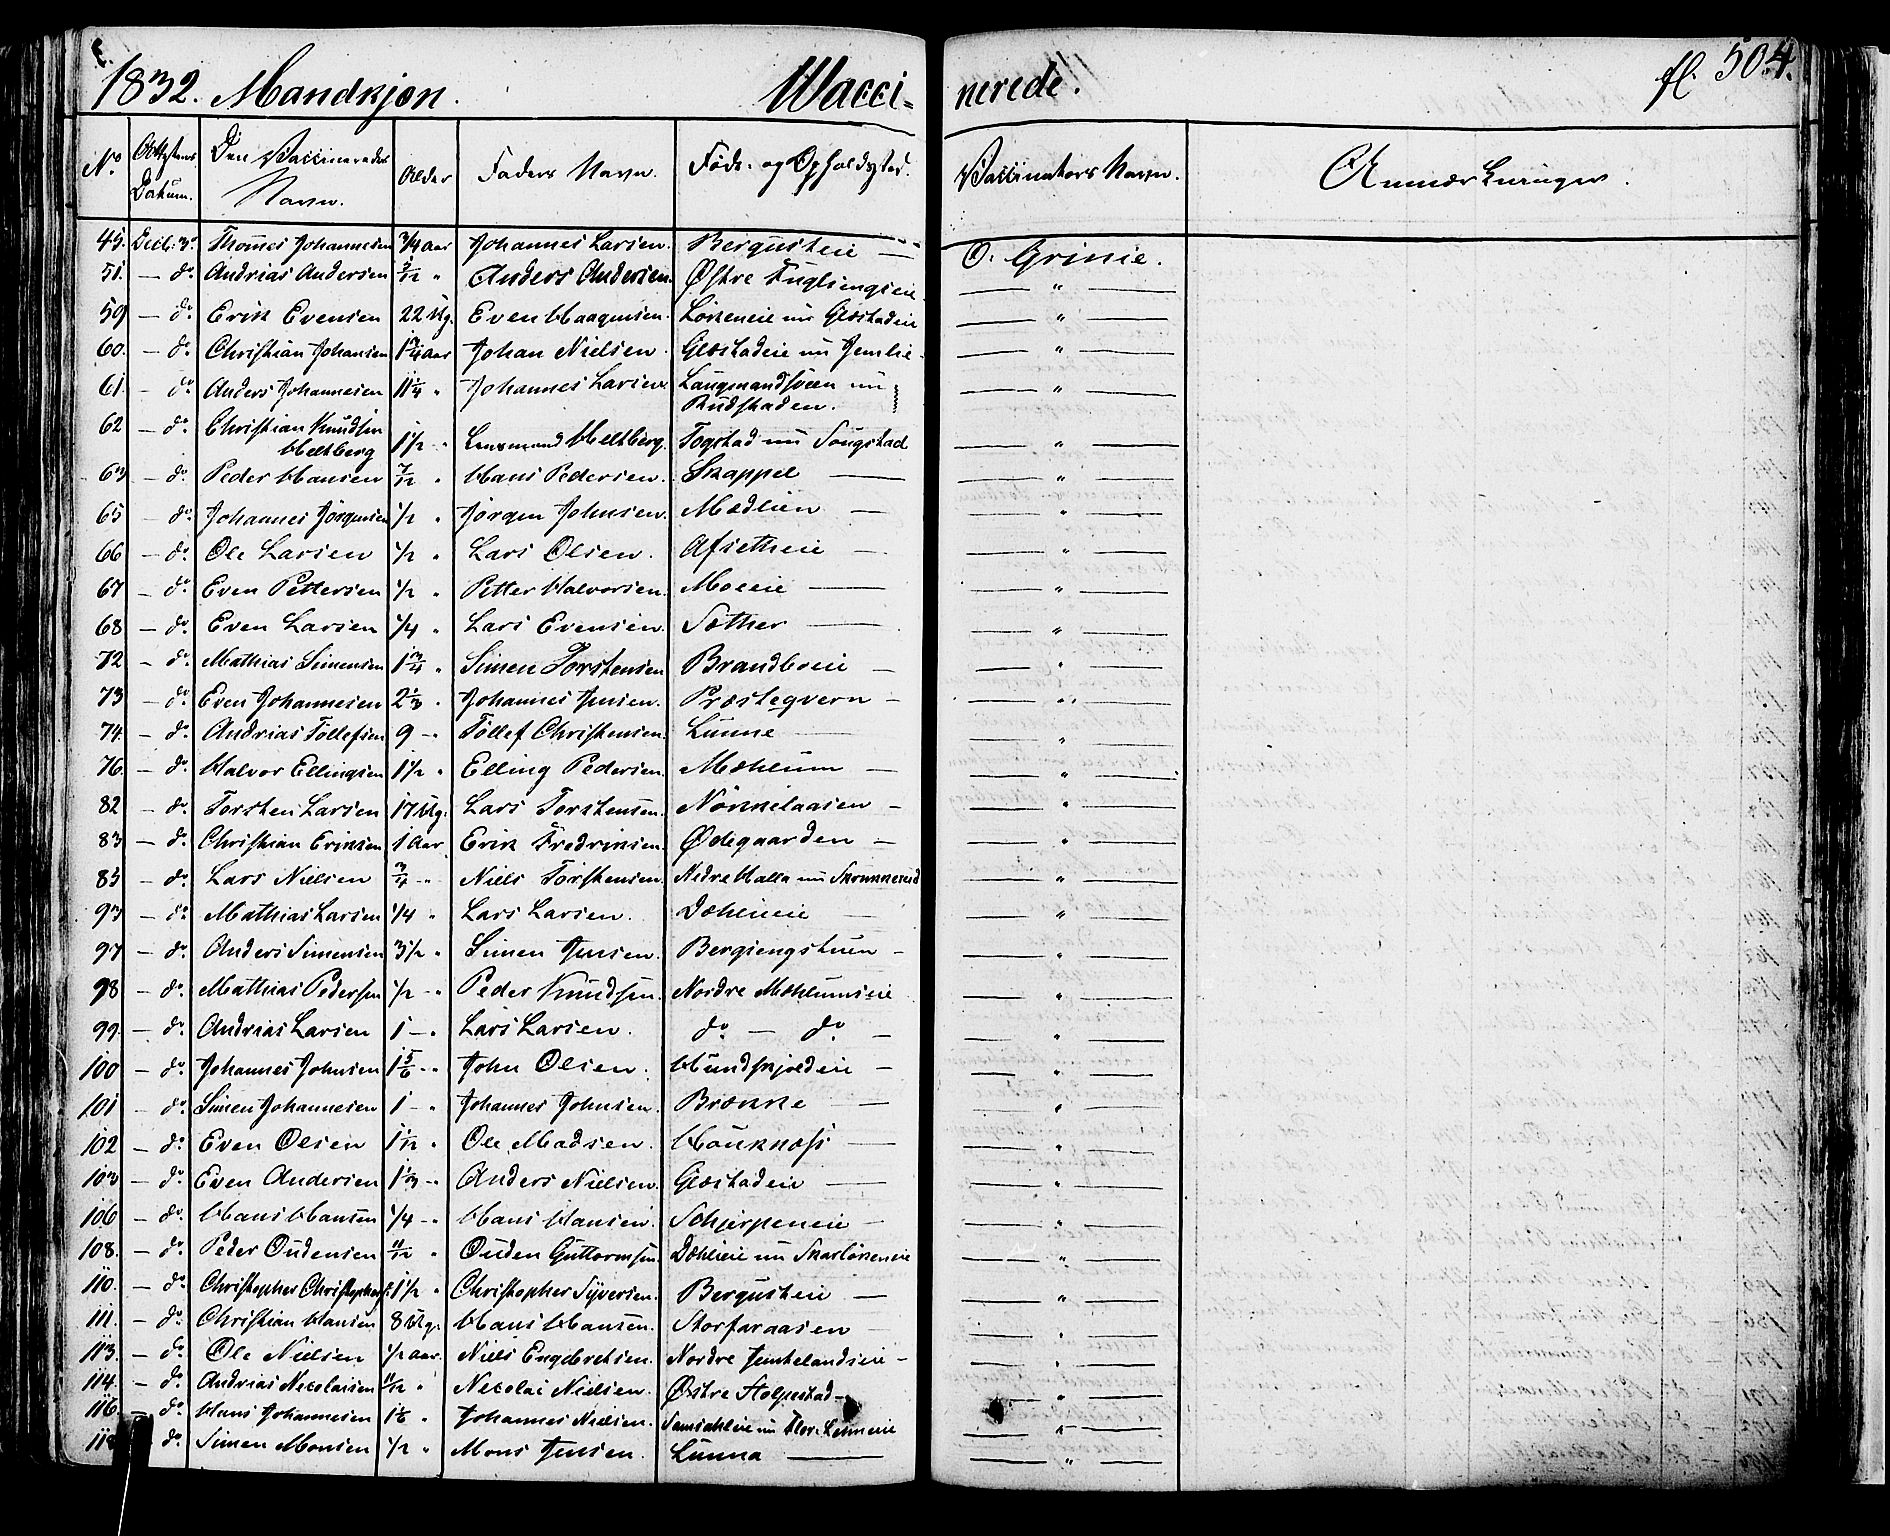 1832. Mandkjøn. Wacci= nerede. fl. 504.
No Attestens Datum. Den Vaccineredes Navn. Alder Faders Navn. Føde- og Opholdsted. Vaccinators Navn. Anmærkninger.
45. Decb: 3. Thomes Johannesen 3/4 Aar Johannes Larsen. Bergusteie — O. Grinie.
51. — do. Andrias Andersen 5/12 " Anders Andersen. Østre Fuglsengeie — " —
59 — do. Erik Evensen 22 Ug. Even Haagensen. Løkeneie nu Gløstadeie — " —
60. — do. Christian Johansen 1 3/4 Aar Johan Nielsen. Gløstadeie nu Jemlie — " —
61. — do. Anders Johannesen 11 1/4 " Johannes Larsen. Langmandsveen nu — " —
Rudstaden.
62 — do. Christian Knudsen
Heltberg 1 1/2 - " Lensmand Heltberg. Togstad nu Songstad — " —
63 — do. Peder Hansen 7/12 " Hans Pedersen. Skappel — — " —
65 — do. Johannes Jørgensen 1/2 " Jørgen Johnsen. Mædlien — — " —
66 — do. Ole Larsen 1/2 " Lars Olsen. Afsetheie — — " —
67 — do. Even Pettersen 1/2 " Petter Halvorsen. Moeeie — — " —
68 — do. Even Larsen 1/4 " Lars Evensen. Sæther — — " —
72 — do. Mathias Simensen 1 3/4 " Simen Torstensen Brandboeie — — " —
73 — do. Even Johannesen 2 1/3 " Johannes Jensen. Præsteqvern — — " —
74. — do. Andrias Tollefsen 9 - " Tollef Christensen. Lunne — — " —
76. — do. Halvor Ellingsen 1 1/2 " Elling Pedersen. Mæhlum — — " —
82 — do. Torsten Larsen 17 Ug. Lars Torstensen. Nønkelaasen — — " —
83 — do. Christian Eriksen 1 Aar Erik Fredriksen. Ødegaarden — — " —
85 — do. Lars Nielsen 3/4 - " Niels Torstensen. Nedre Halla nu Skrukkerud — " —
93 — do. Mathias Larsen 1/4 " Lars Larsen. Dæhlieie — — " —
97 — do. Anders Simensen 3 1/2 " Simen Jensen. Bergsengstuen — — " —
98 — do. Mathias Pedersen 1/2 - " Peder Knudsen. Nordre Mæhlumseie — " —
99. — do. Andrias Larsen 1 - " Lars Larsen. do — do — — " —
100 — do. Johannes Johnsen 1 5/6 - " John Olsen. Hundskjoldeie — — " —
101 — do. Simen Johannesen 1 - " Johannes Johnsen. Brække — — " —
102 — do. Even Olsen 1 1/12 " Ole Madsen. Houknæss — — " —
103 — do. Even Andersen 1 1/3 - " Anders Nielsen. Gløstadeie — — " —
106 — do. Hans Hansen 1/4 - " Hans Hansen. Schjerpeneie — — " —
108. — do. Peder Oudensen 11/12 " Ouden Guttormsen Dæhlieie nu Skarløkeneie — " —
110. — do. Christopher Christophers. 1 1/2 " Christopher Syversen. Bergusteie — — " —
111. — do. Christian Hansen 8 Ug. Hans Hansen. Storfaraasen — — " —
113. — do. Ole Nielsen 1/2 Aar. Niels Engebretsen. Nordre Jemtelandseie — — " —
114. — do. Andrias Necolaisen 11/12 " Necolai Nielsen. Østre Stolpestad — — " —
116 — do. Hans Johannesen 1 1/6 " Johannes Nielsen. Samsahleie nu — " —
do. Simen Monsen 1/2 " Mons Jensen. Lunna — — " —